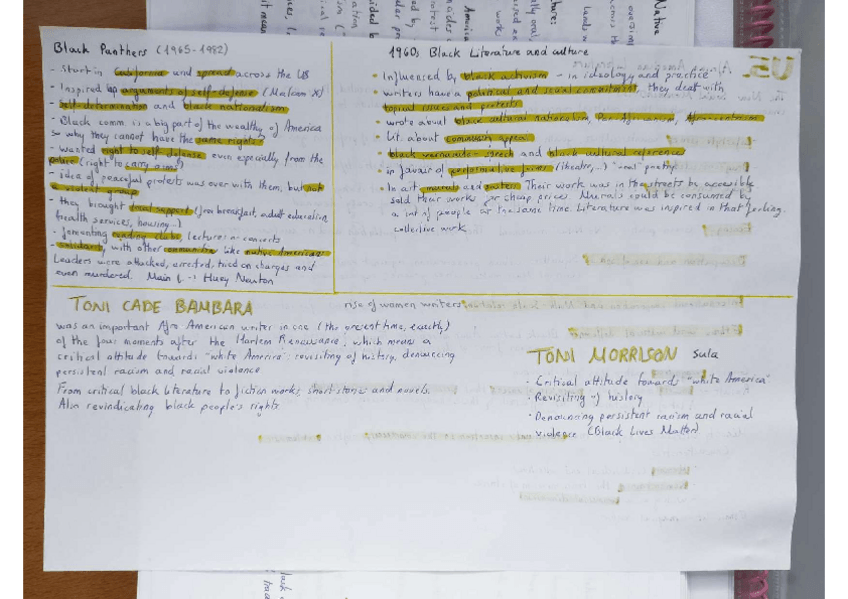 Black Panthers (1965-1982)
- Start in California and spread across the US
- Inspired by arguments of self-defense (Malcom X)
- Self-determination and black nationalism
- Black comm. is a big part of the wealthy of America
so why they cannot have the same rights?
- wanted right to self-defense even especially from the
police (right to carry arms)
- idea of peaceful protests was over with them, but not
a violent group
- they brought local support (free breakfast, adult education
health services, housing...)
- fomenting reading clubs, lectures in concerts
- solidarity with other communities like native Americans
Leaders were attacked, arrested, tried on charges and
even murdered. Main l. -> Huey Newton
1960s Black Literature and culture
• Influenced by black activism - in ideology and practice
• writers have a political and social commitment, they deal with
topical issues and protests
• wrote about black cultural nationalism, Pan-Africanism, Afro-centrism
• Lit. about community appeal
• black vernacular speech and black cultural reference
• in favour of performative forms (theater, ...) "oral" poetry
• In art, murals and poster. Their work was in the streets be accessible
sold their works for cheap prices. Murals could be consumed by
a lot of people at the same time. Literature was inspired in that feeling.
collective work.
U5.
TONI CADE BAMBARA
rise of women writers
was an important Afro American writer in one (the present time, exactly)
of the four moments after the Harlem Renaissance, which means a
critical attitude towards "white America": revisiting of history, denouncing
persistent racism and racial violence
From critical black literature to fiction works, short stories and novels.
Also revindicating black people's rights.
TONI MORRISON Sula
• Critical attitude towards "white America"
• Revisiting of history
• Denouncing persistent racism and racial
violence (Black Lives Matter)